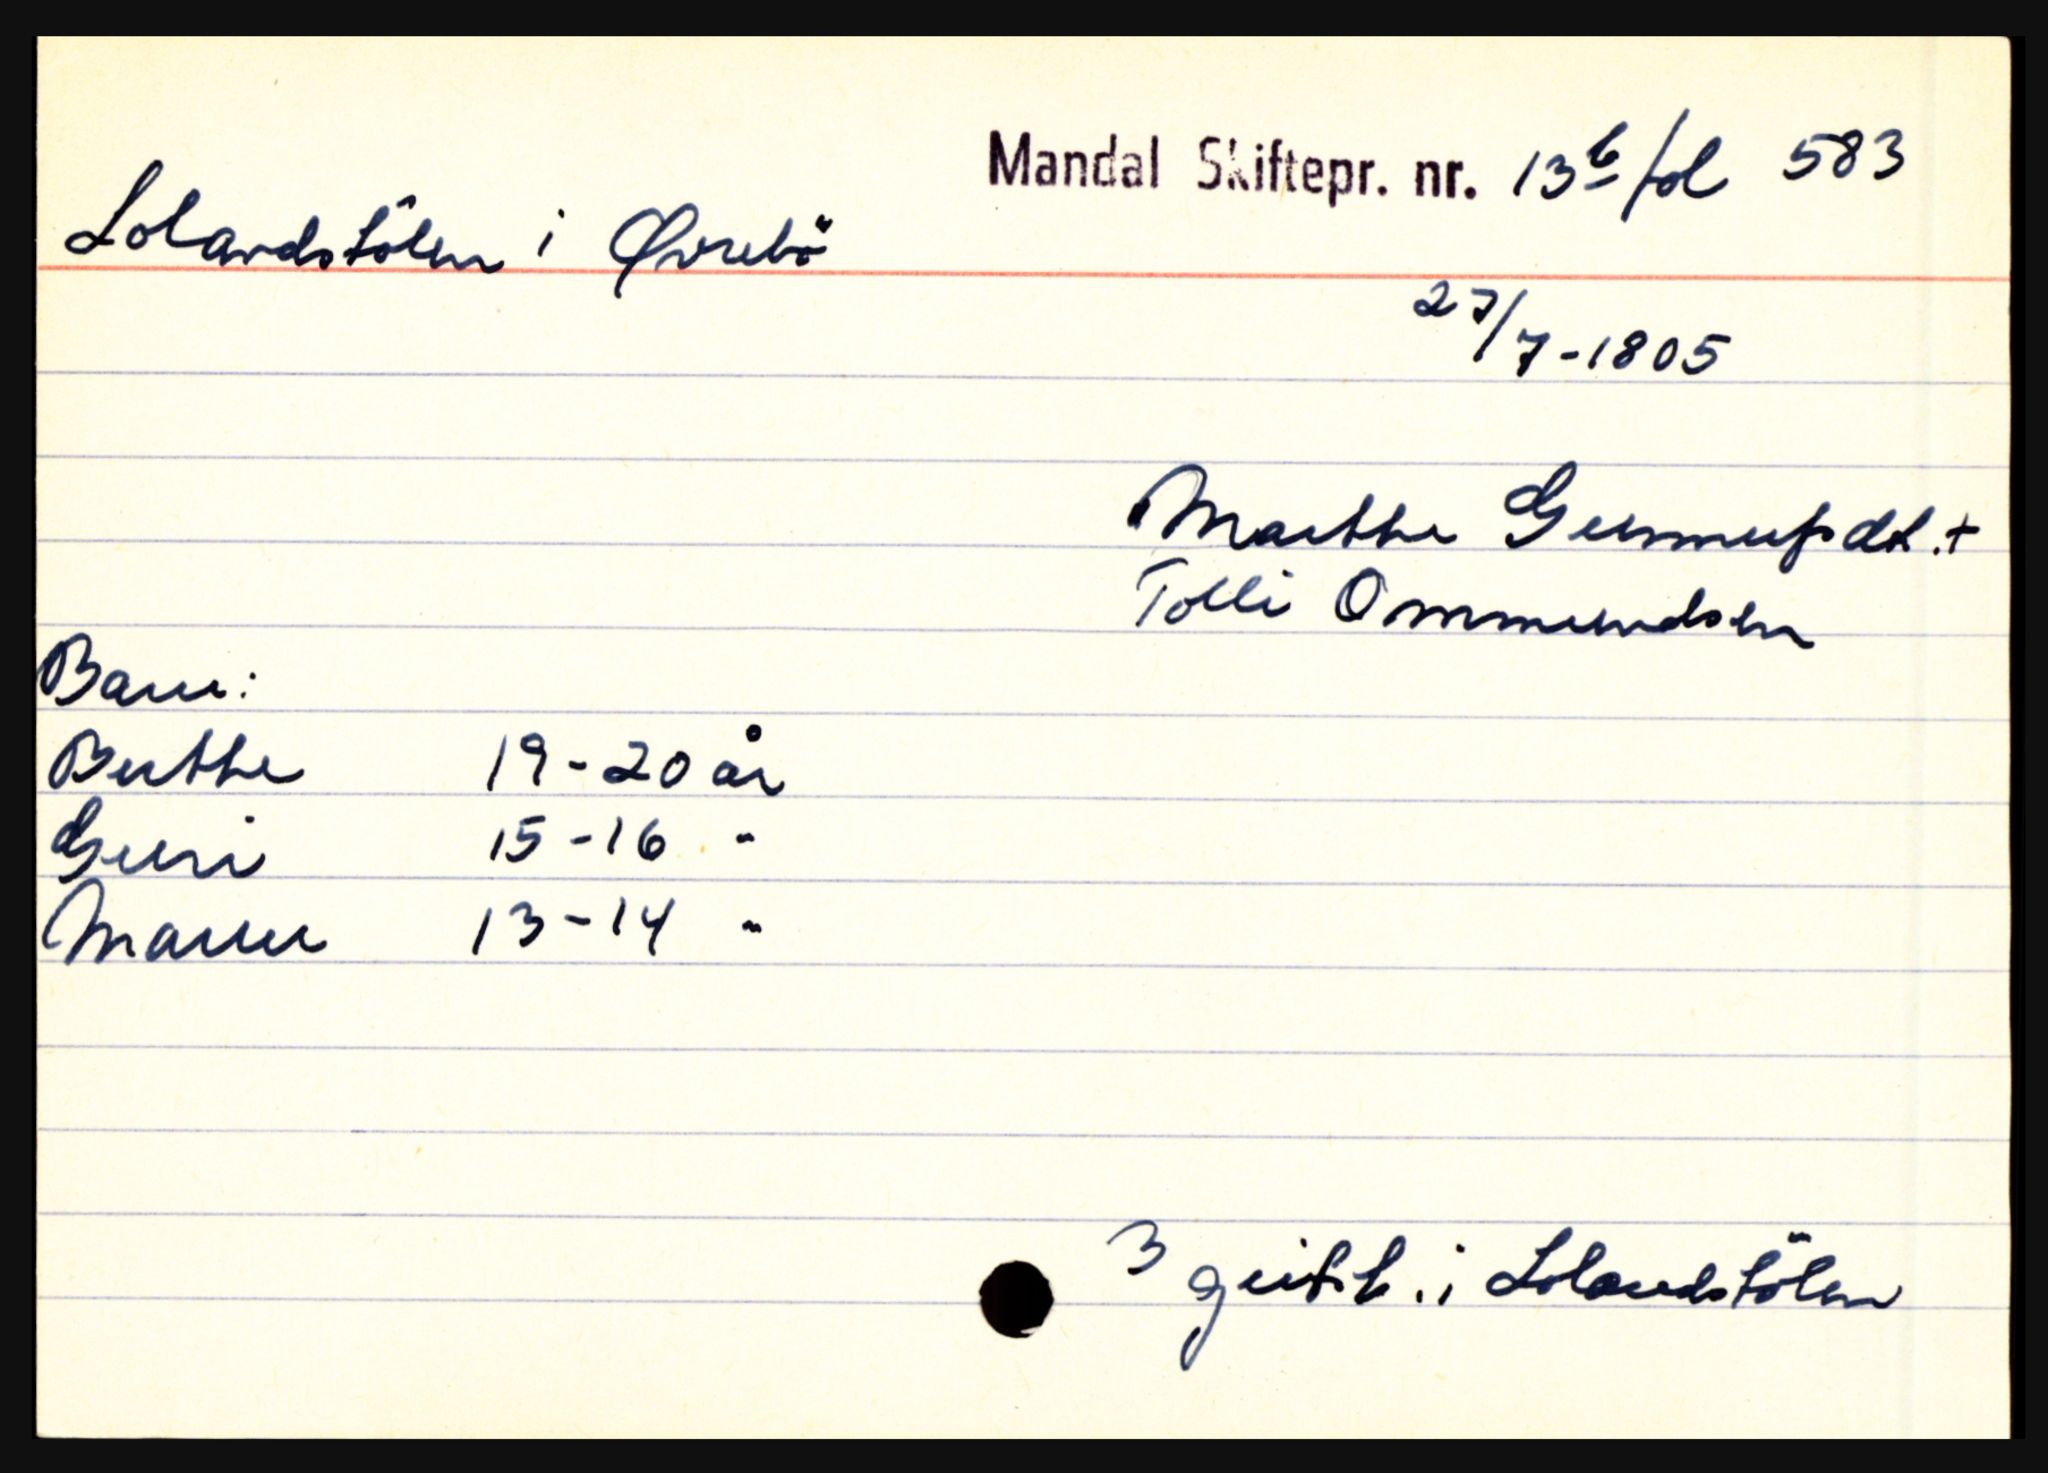 Mandal Skiftepr. nr. 13b fol 583
Lolandstölen i Øvrebö
27/7-1805
Marthe Gunnufsdt. +
Tolli Ommundsen
Barn:
Berthe 19-20 år
Guri 15-16 "
Maren 13-14 "
3 i Lolandstölen